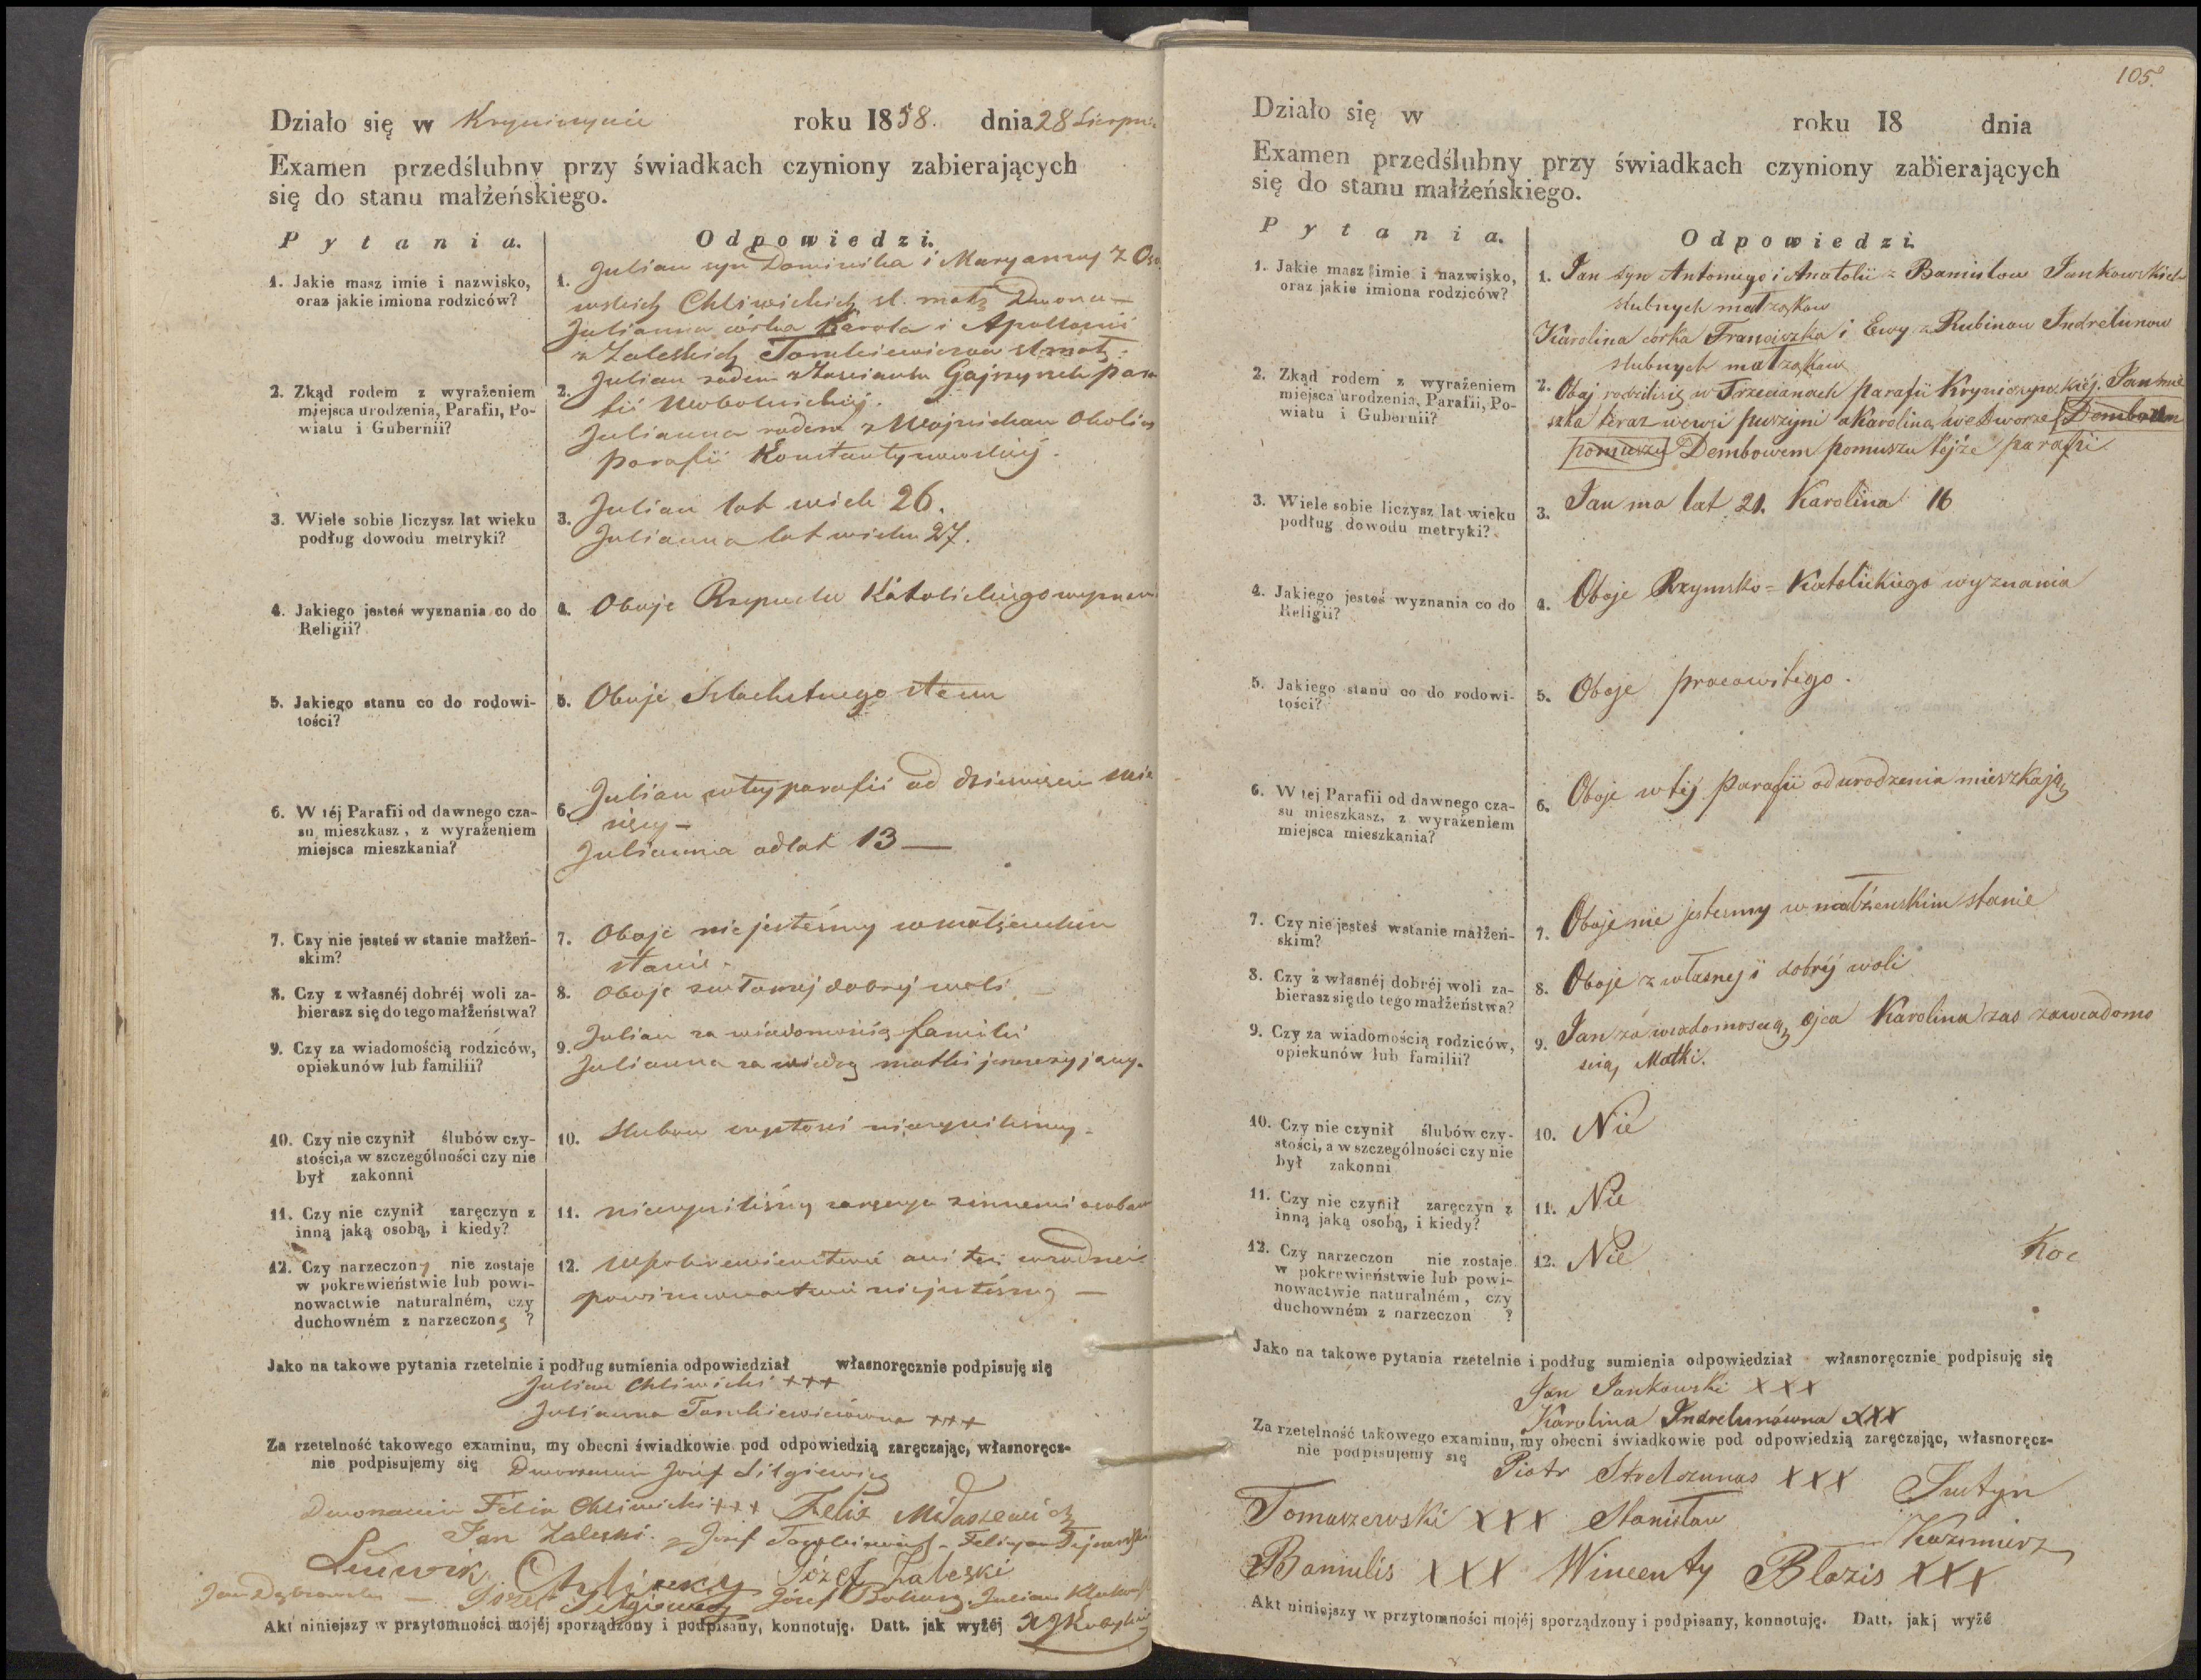 Działo się w Krynicynie roku 1858. dnia 28 Sierpnia
Examen przedślubny przy świadkach czyniony zabierających
się do stanu małżeńskiego.
Pytania. Odpowiedzi.
1. Jakie masz imie i nazwisko,
oraz jakie imiona rodziców?
1. Julian syn Dominika i Maryanny z
Chliwickich sl. małż
Julianna córka Karola i Apollonii
z Zaleskich Tomkiewiczow sl. małż:
2. Zkąd rodem z wyrażeniem
miejsca urodzenia, Parafii, Po-
wiatu i Gubernii?
2. Julian rodem z Zascianku para
fii
Julianna rodem z Okolicy
parafii Konstantynowskiej.
3. Wiele sobie liczysz lat wieku
podług dowodu metryki?
3. Julian lat wiek 26.
Julianna lat wieku 27.
4. Jakiego jesteś wyznania co do
Religii?
4. Oboje Katolickiego
5. Jakiego stanu co do rodowi-
tości?
5. Oboje Szlachetnego stanu
6. W téj Parafii od dawnego cza-
su mieszkasz, z wyrażeniem
miejsca mieszkania?
6. Julian w tey parafii od dziewięciu mie
sięcy —
Julianna od lat 13 —
7. Czy nie jesteś w stanie małżeń-
skim?
7. Oboje nie jesteśmy w małżeńskim
stanie.
8. Czy z własnéj dobréj woli za-
bierasz się do tego małżeństwa?
8. Oboje z własnej dobrej woli —
9. Czy za wiadomością rodziców,
opiekunów lub familii?
9. Julian za wiadomością familii
Julianna za wiedzą matki
10. Czy nie czynił ślubów czy-
stości, a w szczególności czy nie
był zakonni
10. Slubow czystosci nieczynilismy.
11. Czy nie czynił zaręczyn z
inną jaką osobą, i kiedy?
11. nieczyniliśmy zaręczyn z innemi osobami
12. Czy narzeczony nie zostaje
w pokrewieństwie lub powi-
nowactwie naturalném, czy
duchowném z narzeczoną ?
12. W pokrewienstwie ani też w żadnem
powinowactwie niejesteśmy —
Jako na takowe pytania rzetelnie i podług sumienia odpowiedział własnoręcznie podpisuję się
Julian Chliwicki +++
Julianna Tomkiewiczówna +++
Za rzetelność takowego examinu, my obecni świadkowie pod odpowiedzią zaręczając, własnoręcz-
nie podpisujemy się Dworzanin Józef
Dworzanin Felix Chliwicki +++ Felix
Jan Zaleski. Józef Tomkiewicz - Felicyan
Ludwik Józef Zaleski
Jan Dąbrowski — Józef Józef Julian
Akt niniejszy w przytomności mojéj sporządzony i podpisany, konnotuję. Datt. jak wyżéj
105.
Działo się w roku 18 dnia
Examen przedślubny przy świadkach czyniony zabierających
się do stanu małżeńskiego.
Pytania. Odpowiedzi.
1. Jakie masz imie i nazwisko,
oraz jakie imiona rodziców?
1. Jan syn Antoniego i Anatolii z Bamislow Jankowskich
slubnych małżąkow
Karolina córka Franciszka i Ewy z Rubinow Indrelunow
slubnych małżąkow
2. Zkąd rodem z wyrażeniem
miejsca urodzenia, Parafii, Po-
wiatu i Gubernii?
2. Obaj rodzilisię w Trzecianach parafii Krynicynskiéj. Jan mie
szka teraz wewsi puszyni a Karolina we Dworze Dembowem
pomuszu Dembowem pomuszu tejże parafii
3. Wiele sobie liczysz lat wieku
podług dowodu metryki?
3. Jan ma lat 21. Karolina 16
4. Jakiego jesteś wyznania co do
Religii?
4. Oboje Rzymsko=Katolickiego wyznania
5. Jakiego stanu co do rodowi-
tości?
5. Oboje pracowitego.
6. W tej Parafii od dawnego cza-
su mieszkasz, z wyrażeniem
miejsca mieszkania?
6. Oboje w téj parafii od urodzenia mieszkają
7. Czy nie jesteś wstanie małżeń-
skim?
7. Oboje nie jestesmy w małżenskim stanie
8. Czy z własnéj dobréj woli za-
bierasz się do tego małżeństwa?
8. Oboje z własnej i dobréj woli
9. Czy za wiadomością rodziców,
opiekunów lub familii?
9. Jan za wiadomoscią ojca Karolina zas zawiadomo
scią Matki.
10. Czy nie czynił ślubów czy-
stości, a w szczególności czy nie
był zakonni
10. Nie
11. Czy nie czynił zaręczyn z
inną jaką osobą, i kiedy?
11. Nie
12. Czy narzeczon nie zostaje
w pokrewieństwie lub powi-
nowactwie naturalném, czy
duchowném z narzeczon ?
12. Nie Koc
Jako na takowe pytania rzetelnie i podług sumienia odpowiedział własnoręcznie podpisuję się
Jan Jankowski XXX
Karolina Indrelunówna XXX
Za rzetelność takowego examinu, my obecni świadkowie pod odpowiedzią zaręczając, własnoręcz-
nie podpisujemy się Piotr Strelczunas XXX Justyn
Tomaszewski XXX Stanisław Kazimierz
Bamulis XXX Wincenty Blazis XXX
Akt niniejszy w przytomności mojéj sporządzony i podpisany, konnotuję. Datt. jak wyżé